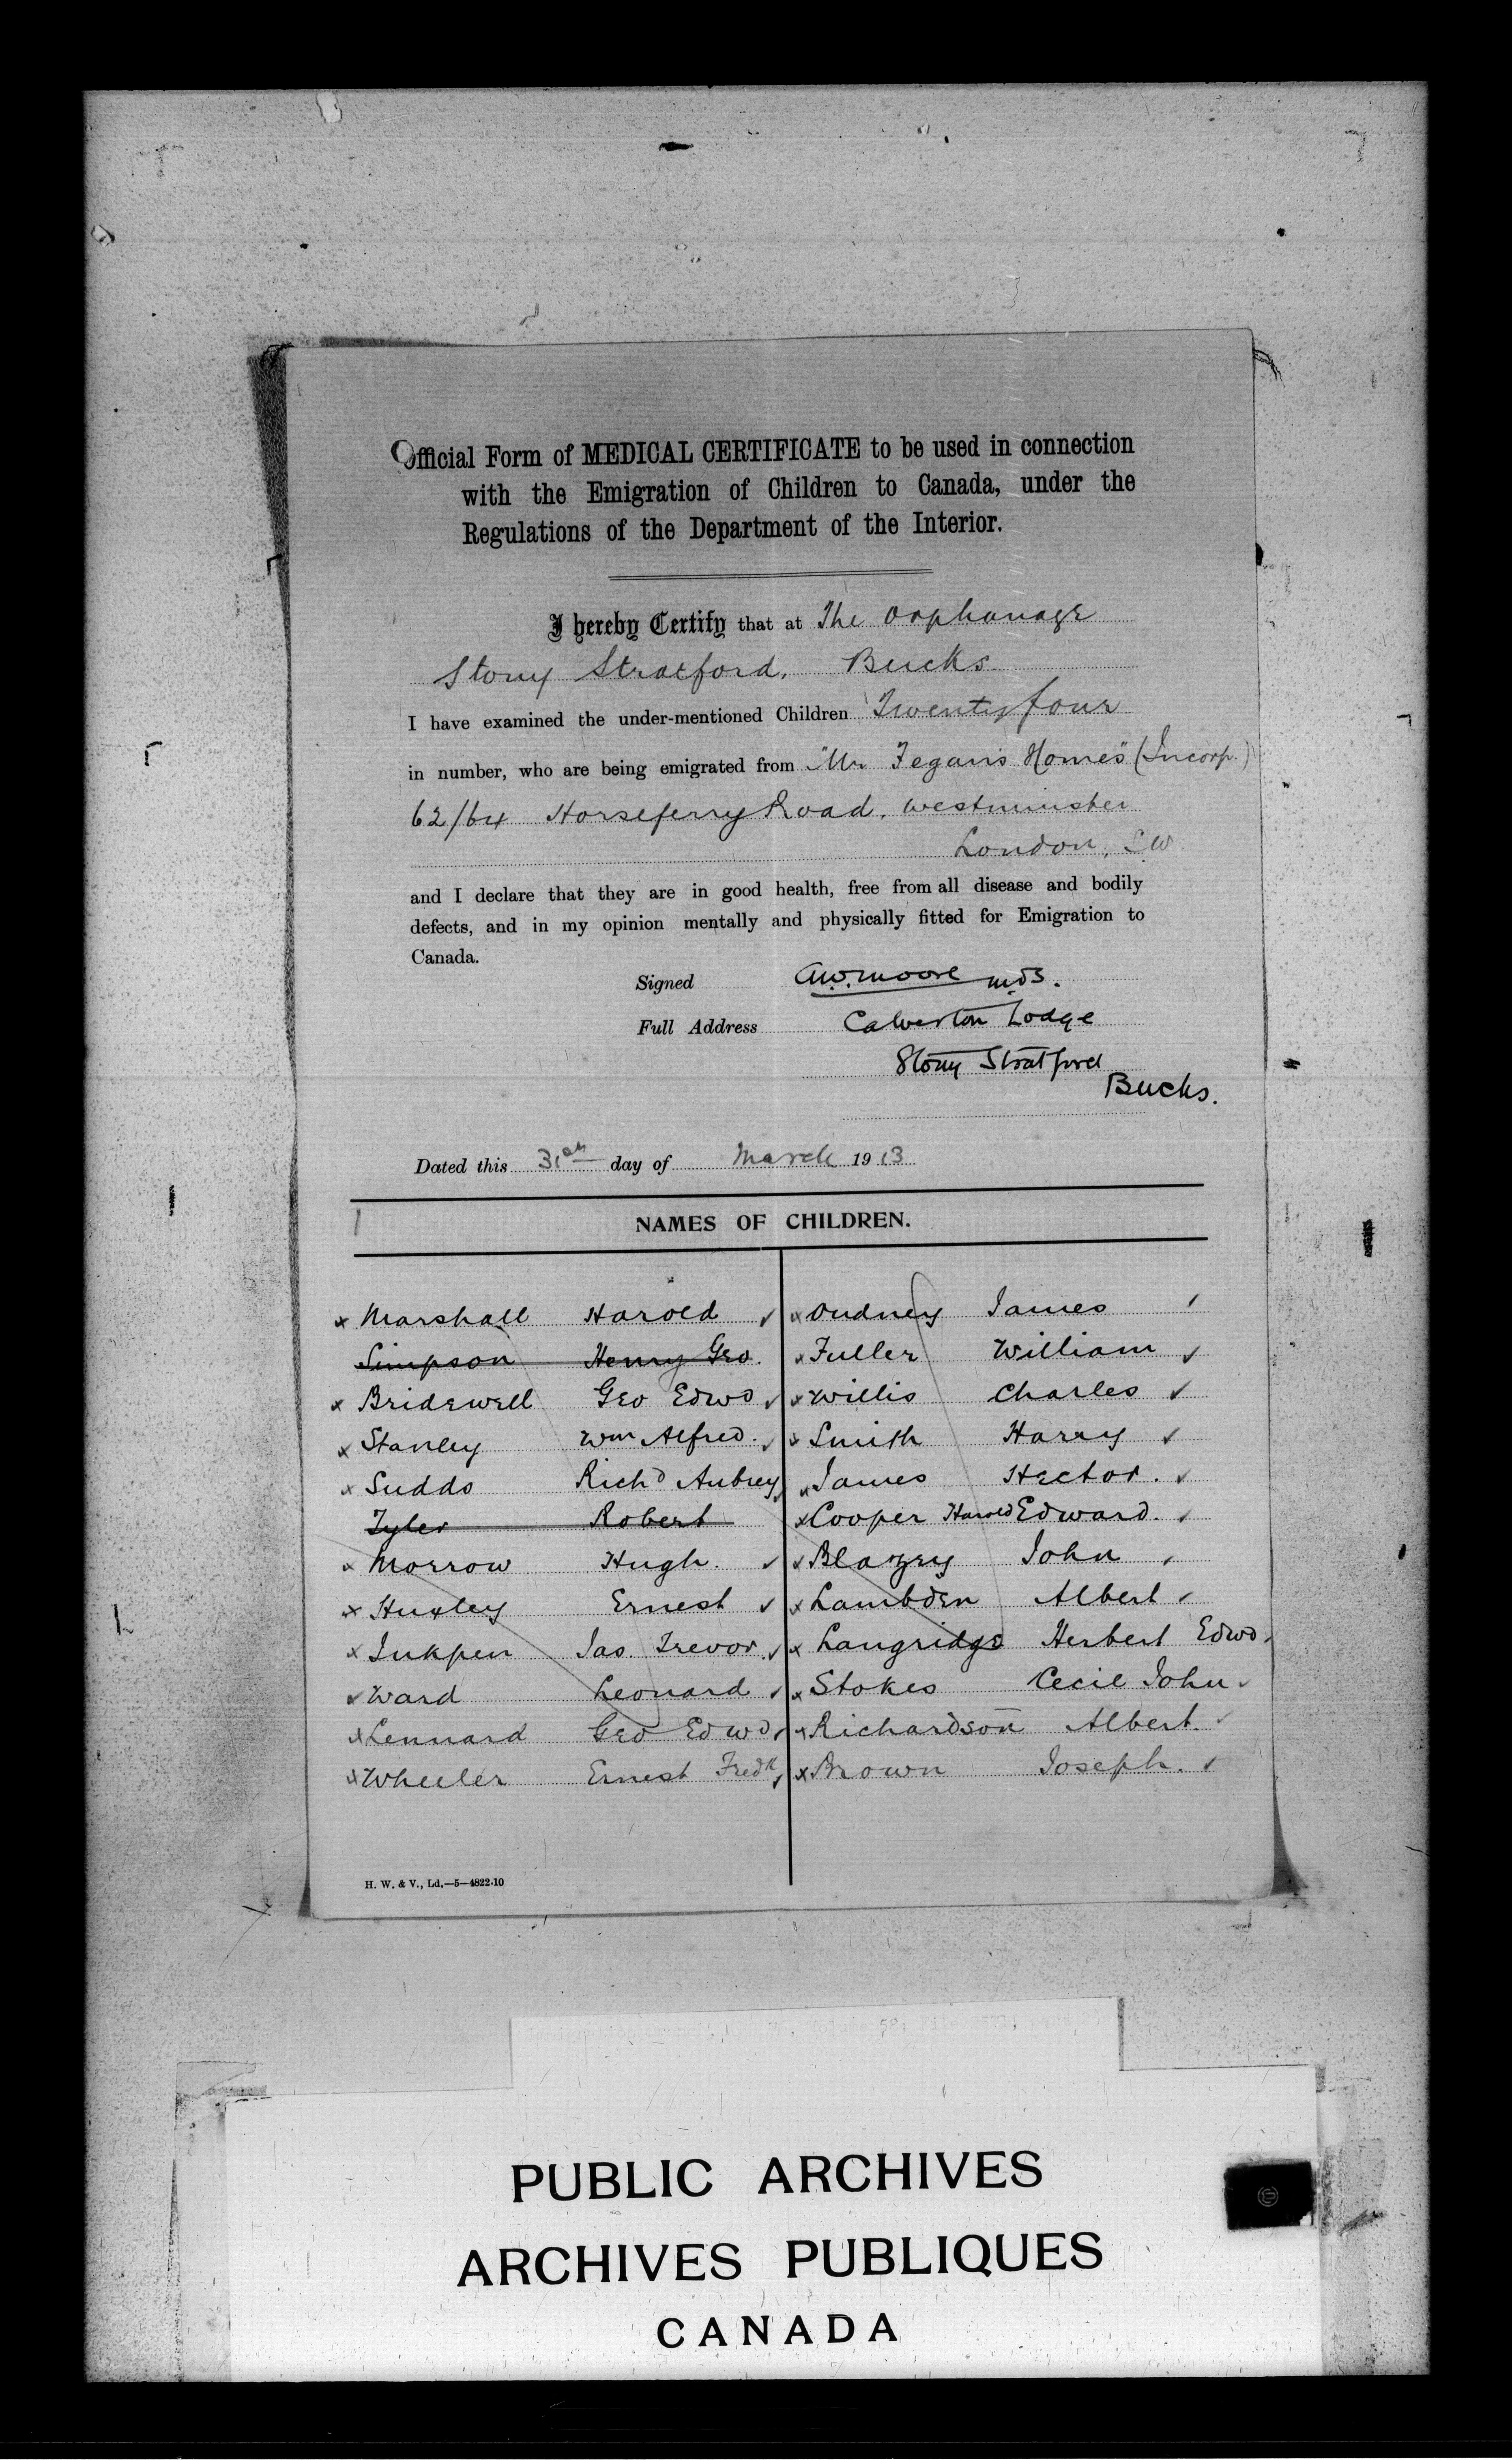 Official Form of MEDICAL CERTIFICATE to be used in connection
with the Emigration of Children to Canada, under the
Regulations of the Department of the Interior.
I hereby Certify that at The Orphanage
Stony Stratford. Bucks.
I have examined the under-mentioned Children Twenty four
in number, who are being emigrated from "Mr Fegan's Homes" (Incorp.)
62/64 Horseferry Road. Westminster
London, S.W
and I declare that they are in good health, free from all disease and bodily
defects, and in my opinion mentally and physically fitted for Emigration to
Canada.
Signed A.W. Moore
Full Address Calverton Lodge
Stony Stratford
Bucks.
Dated this 31st day of March 1913
NAMES OF CHILDREN.
Marshall Harold
Simpson Henry Geo.
Bridewell Geo Edwd
Stanley Wm Alfred.
Sudds Richd Aubrey
Tyler Robert
Morrow Hugh.
Huxley Ernest
Inkpen Jas. Trevor.
Ward Leonard
Lennard Geo Edwd
Wheeler Ernest Fredk
Oudney James
Fuller William
Willis Charles
Smith Harry
James Hector.
Cooper Harold Edward.
Blazey John
Lambden Albert
Langridge Herbert Edwd.
Stokes Cecil John
Richardson Albert.
Brown Joseph.
H. W. & V., Ld.—5—4822-10
PUBLIC ARCHIVES
ARCHIVES PUBLIQUES
CANADA